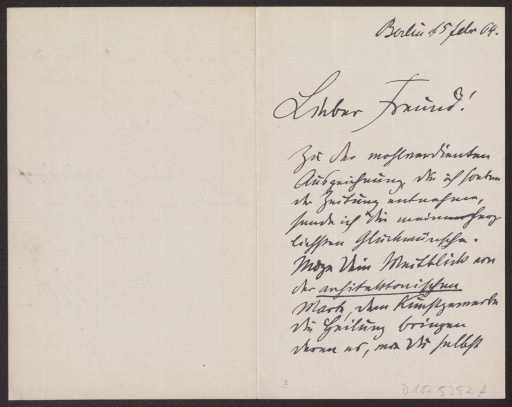 Berlin 15 febr 04.
Lieber Freund!
Zu der wohlverdienten
Auszeichnung, die ich soeben
der Zeitung entnehme,
sende ich Dir meine herz
lichsten Glückwünsche.
Möge Dein Weitblick von
der architektonischen
Warte, dem Kunstgewerbe
die Heilung bringen
deren es, wie Du selbst